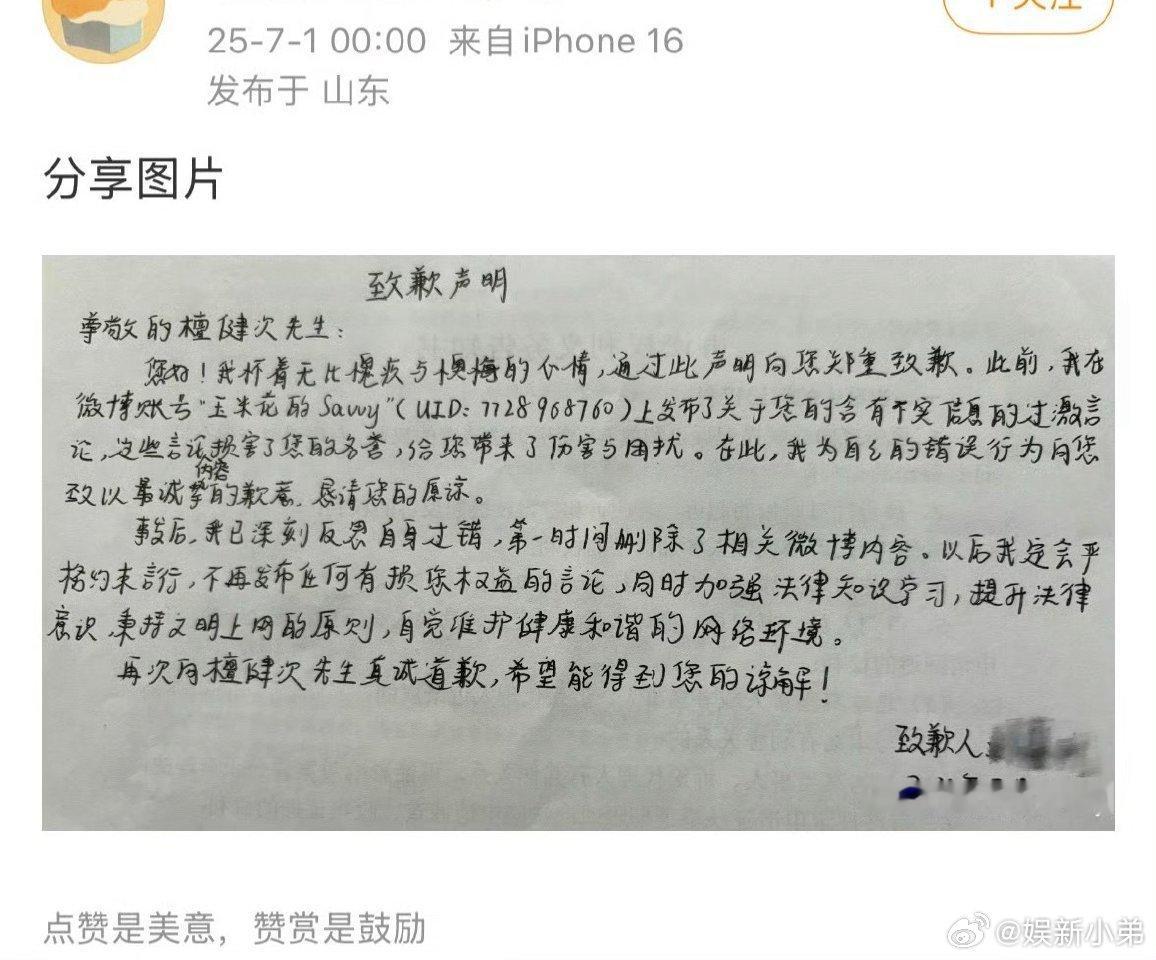 25-7-1 00:00 来自 iPhone 16
发布于 山东
分享图片
致歉声明
尊敬的檀健次先生：
您好！我怀着无比愧疚与懊悔的心情，通过此声明向您郑重致歉。此前，我在
微博账号“玉米花的Savvy”（UID：7728968760）上发布了关于您的含有不实信息的过激言
论，这些言论损害了您的名誉，给您带来了伤害与困扰。在此，我为自己的错误行为向您
内容
致以最诚挚的歉意，恳请您的原谅。
事发后，我已深刻反思自身过错，第一时间删除了相关微博内容。以后我定会严
格约束言行，不再发布任何有损您权益的言论，同时加强法律知识学习，提升法律
意识，秉持文明上网的原则，自觉维护健康和谐的网络环境。
再次向檀健次先生真诚道歉，希望能得到您的谅解！
致歉人
点赞是美意，赞赏是鼓励
@娱新小弟